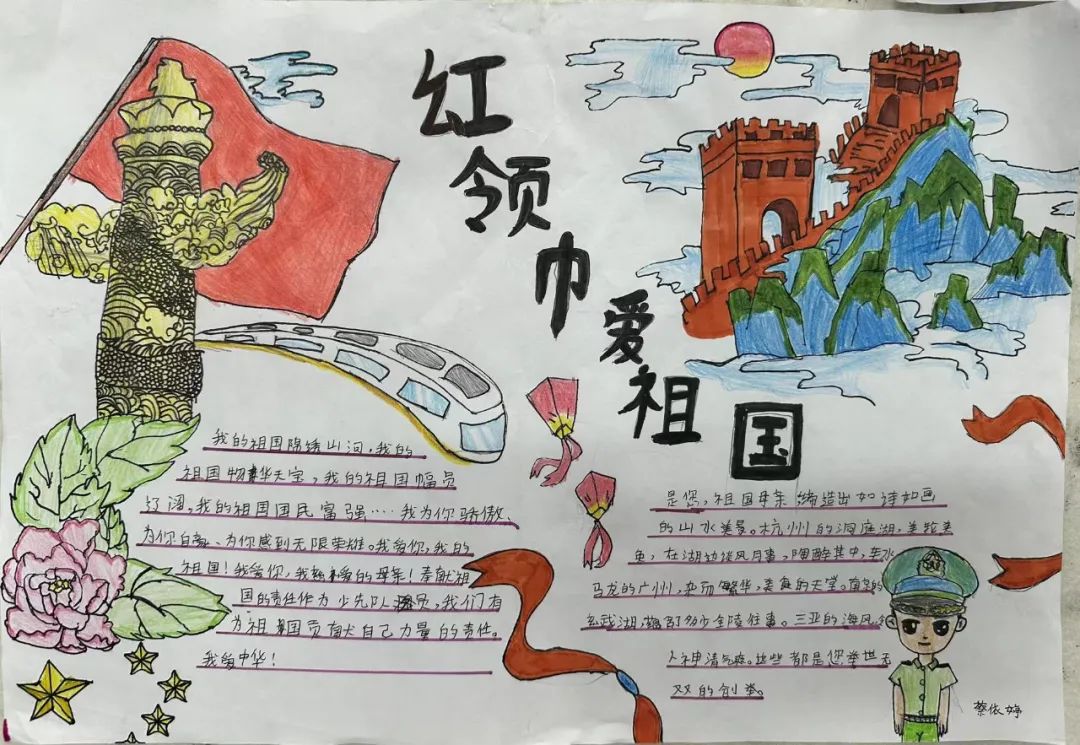 红领巾爱祖国
我的祖国锦锈山河，我的
祖国物华天宝，我的祖国幅员
辽阔，我的祖国国民富强…我为你骄傲、
为你自豪、为你感到无限荣雄。我爱你，我的
祖国！我爱你，我亲爱的母亲！奉献祖
国的责任作为少先队员，我们有
为祖国贡献自己力量的责任。
我爱中华！
是您，祖国母亲缔造出如诗如画
的山水美景。杭州的洞庭湖，美
在湖 风月事，陶醉其中，车水
马龙的广州， 而繁华， 的天堂。南京的
玄武湖， 多少金陵往事。三亚的海风
人神清气爽。这些都是您举世无
双的创举。
蔡依婷